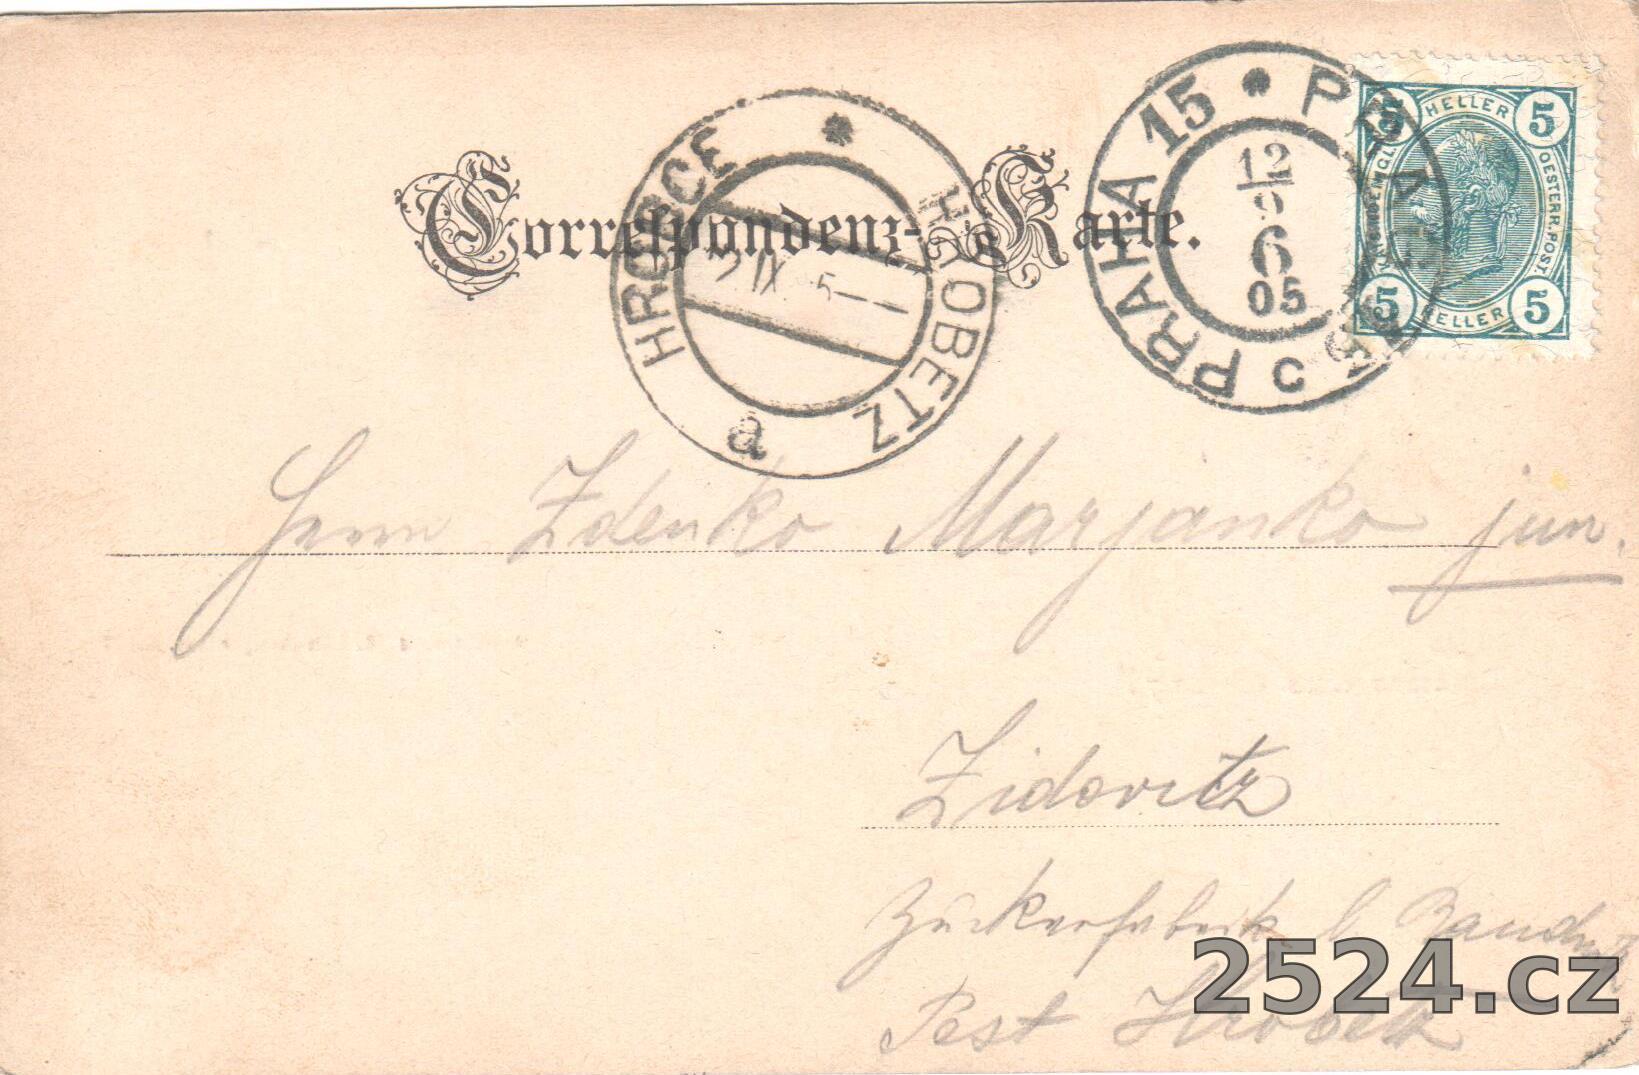 Correspondenz-Karte.
HROBCE * HROBETZ a
2 IX 5
PRAHA 15 * PRAG 15 C
12
9
6
05
5 HELLER 5
KAIS. KOENIGL. OESTERR. POST.
5 HELLER 5
Herrn Zdenko Marjanko jun.
Židovitz
Zuckerfabrik b Raudnitz
Post Hrobetz
2524.cz